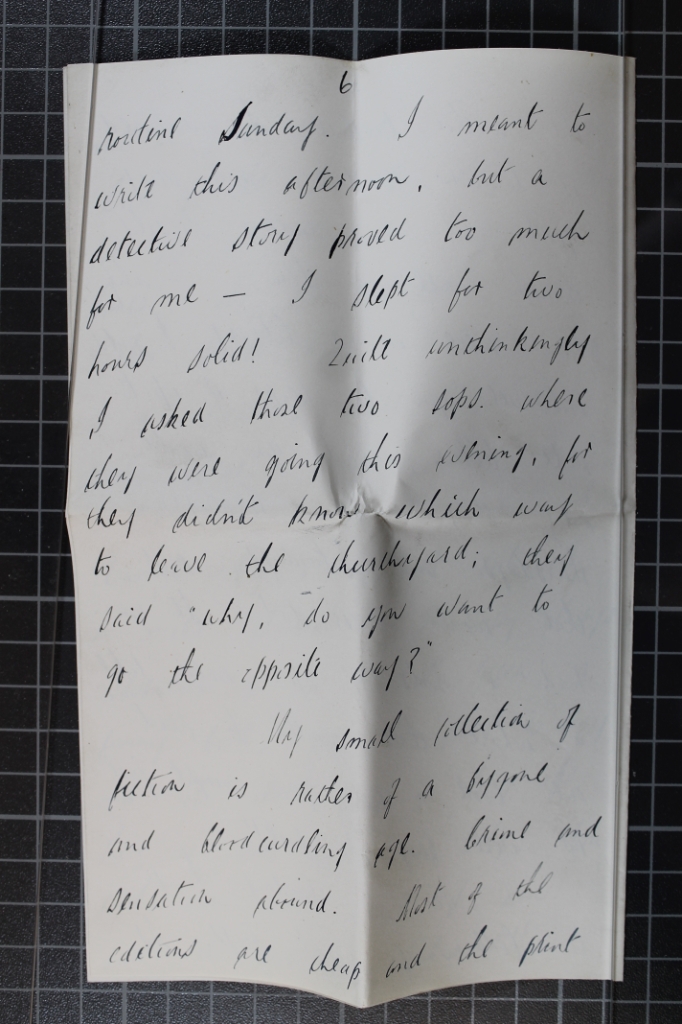 6
routine Sunday. I meant to
write this afternoon, but a
detective story proved too much
for me — I slept for two
hours solid! Quite unthinkingly
I asked those two sops. where
they were going this evening, for
they didn't know which way
to leave the churchyard; they
said "why, do you want to
go the opposite way?"
My small collection of
fiction is rather of a bygone
and bloodcurdling age. Crime and
sensation abound. Most of the
editions are cheap and the print